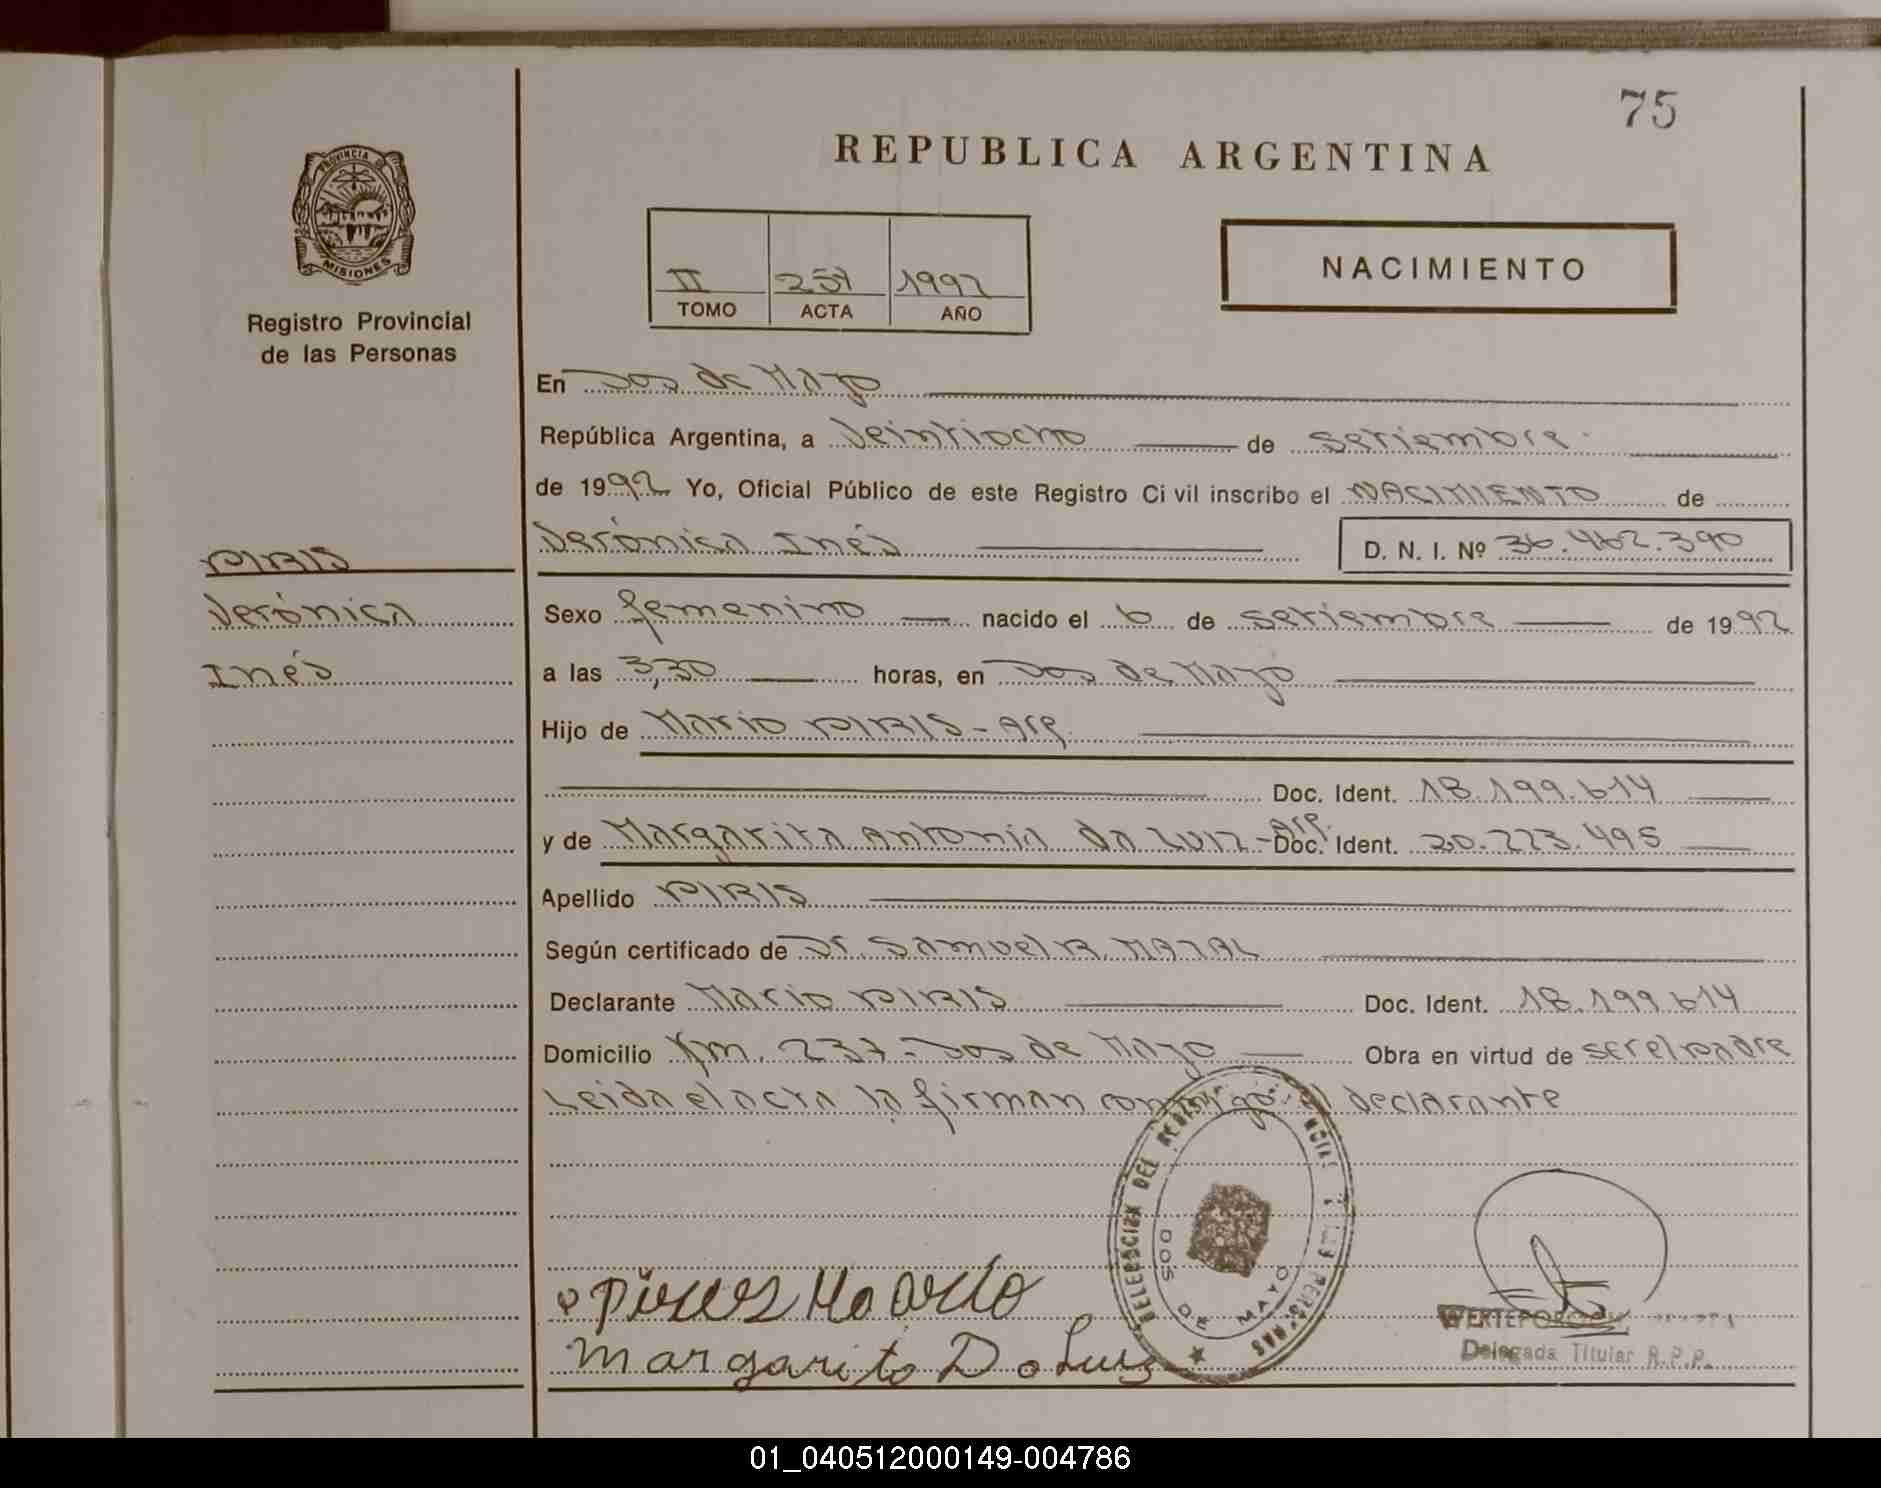 75
REPUBLICA ARGENTINA
PROVINCIA DE
MISIONES
Registro Provincial
de las Personas
II 257 1992
TOMO ACTA AÑO
NACIMIENTO
En Dos de Mayo
República Argentina, a Veintiocho de Setiembre
de 1992 Yo, Oficial Público de este Registro Civil inscribo el NACIMIENTO de
Verónica Inés D. N. I. Nº 36.462.390
PIRIS
Verónica
Inés
Sexo femenino nacido el 6 de Setiembre de 1992
a las 3,30 horas, en Dos de Mayo
Hijo de Mario PIRIS - Arg.
Doc. Ident. 18.199.614
y de Margarita Antonia da LUIZ - Arg. Doc. Ident. 20.223.495
Apellido PIRIS
Según certificado de Dr. Samuel R. MAZAL
Declarante Mario PIRIS Doc. Ident. 18.199.614
Domicilio Km. 237 - Dos de Mayo Obra en virtud de ser el padre
Leida el acta la firman conmigo el declarante
DELEGACION DEL REGISTRO PROVINCIAL DE LAS PERSONAS
DOS DE MAYO
Margarito Da Luiz
Delegada Titular R.P.P.
01_040512000149-004786